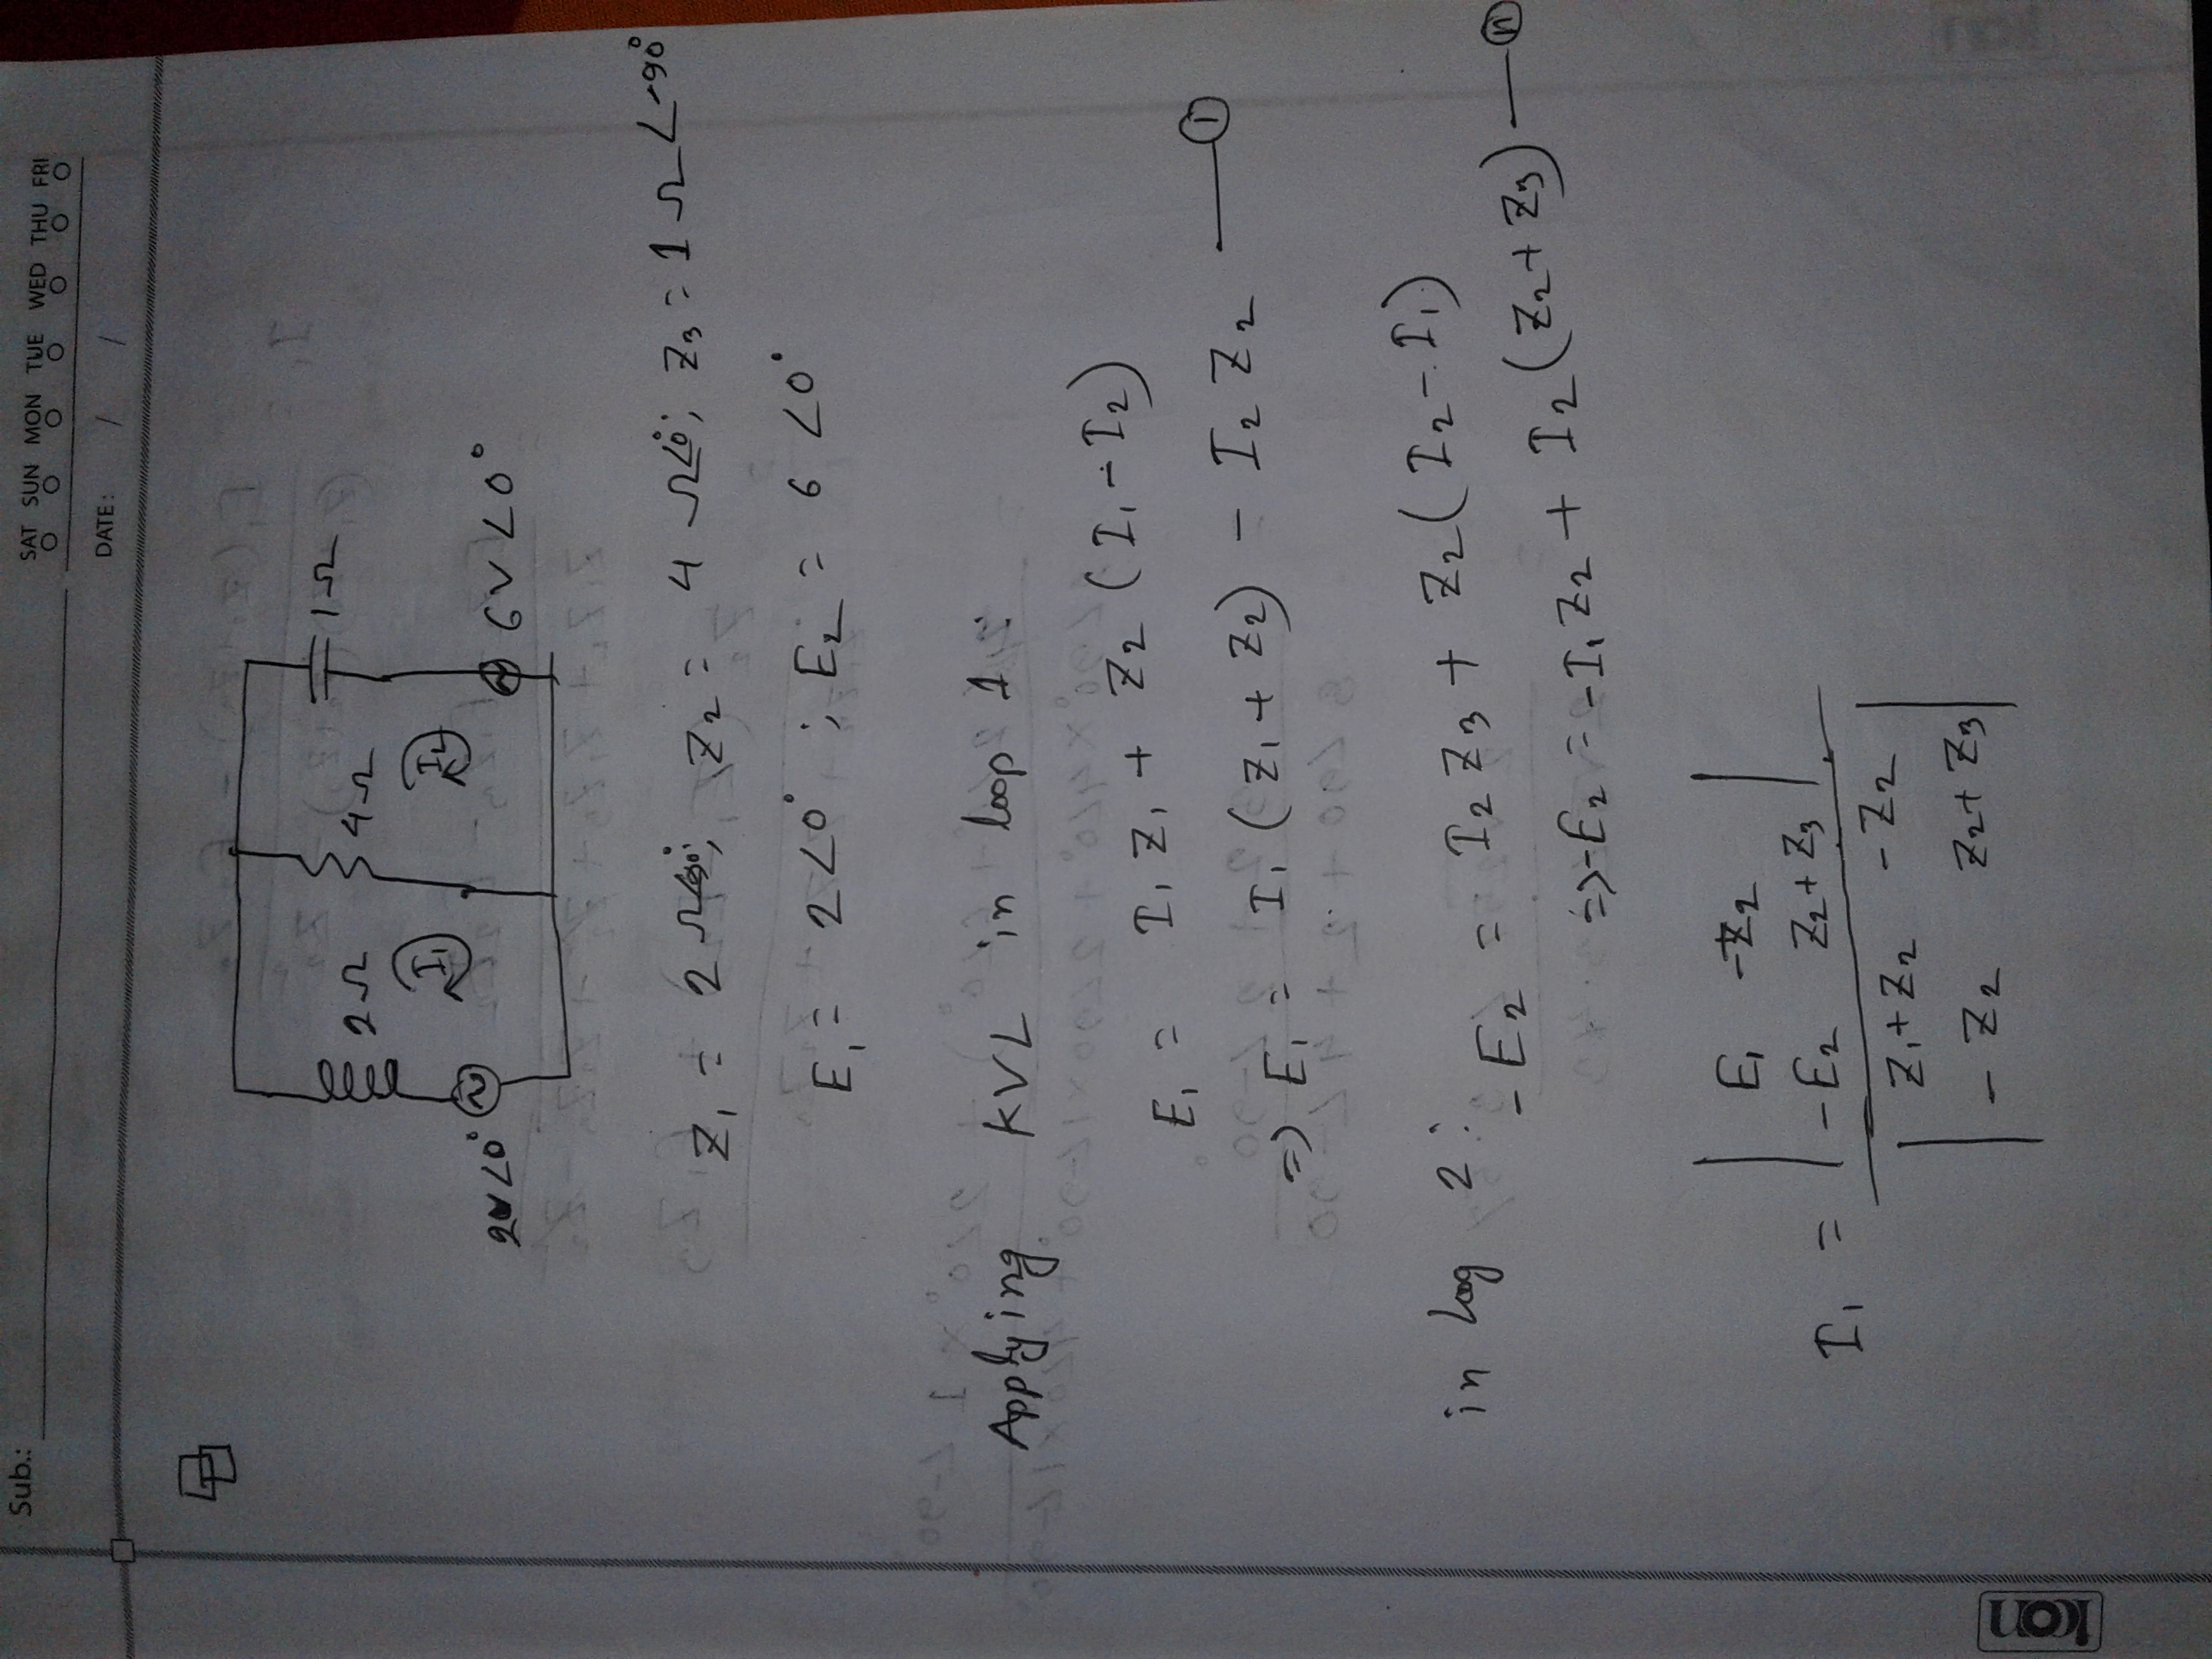 Sub.:
SAT SUN MON TUE WED THU FRI
DATE: / /
2Ω
4Ω
1Ω
I₁
I₂
2V∠0°
6V∠0°
Z₁ = 2Ω∠90°; Z₂ = 4Ω∠0°; Z₃ = 1Ω∠-90°
E₁ = 2∠0° ; E₂ = 6∠0°
Applying KVL in loop 1:
E₁ = I₁Z₁ + Z₂(I₁-I₂)
=> E₁ = I₁(Z₁+Z₂) - I₂Z₂ —— ①
in loog 2: -E₂ = I₂Z₃ + Z₂(I₂-I₁)
=> -E₂ = -I₁Z₂ + I₂(Z₂+Z₃) —— ⑪
E₁ -Z₂
I₁ = -E₂ Z₂+Z₃
Z₁+Z₂ -Z₂
-Z₂ Z₂+Z₃
icon